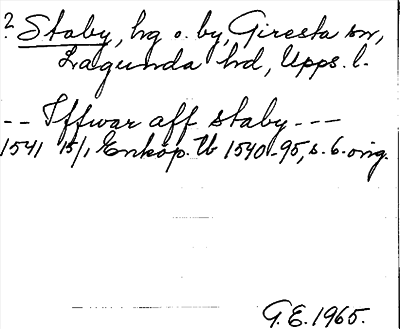 ? Staby, hg o. by, Giresta sn,
Lagunda hd, Upps. l.
-- Iffwar aff staby ---
1541 15/1 Enköp. Tb 1540-95, s. 6. orig.
G.E. 1965.